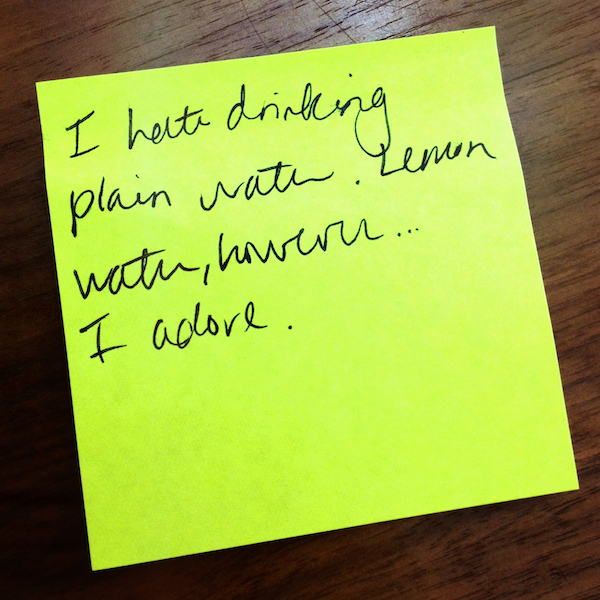 I hate drinking
plain water. Lemon
water, however...
I adore.